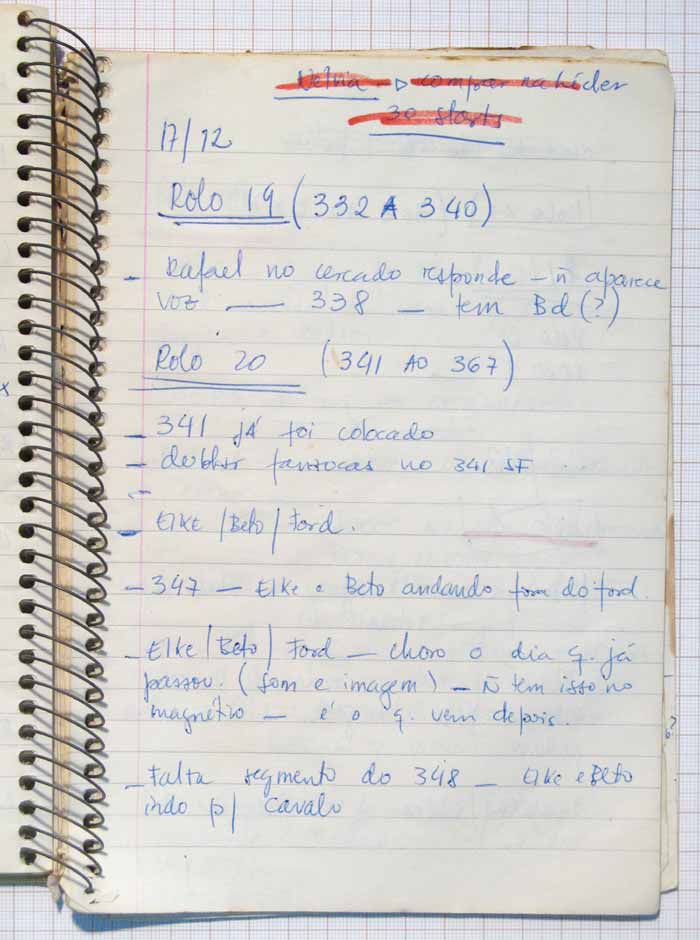 Nelvia → comprar na Líder
30 starts
17/12
Rolo 19 (332 A 340)
- Rafael no cercado responde - ñ aparece
voz — 338 — tem Bd (?)
Rolo 20 (341 AO 367)
- 341 JÁ foi colocado
- dublar no 341 SF
-
- Elke / Beto / Ford.
- 347 - Elke e Beto andando fora do ford.
- Elke / Beto / Ford - choro o dia q. já
passou. (som e imagem) - Ñ tem isso no
magnético - é o q. vem depois.
- Falta segmento do 348 - Elke e Beto
indo p/ cavalo